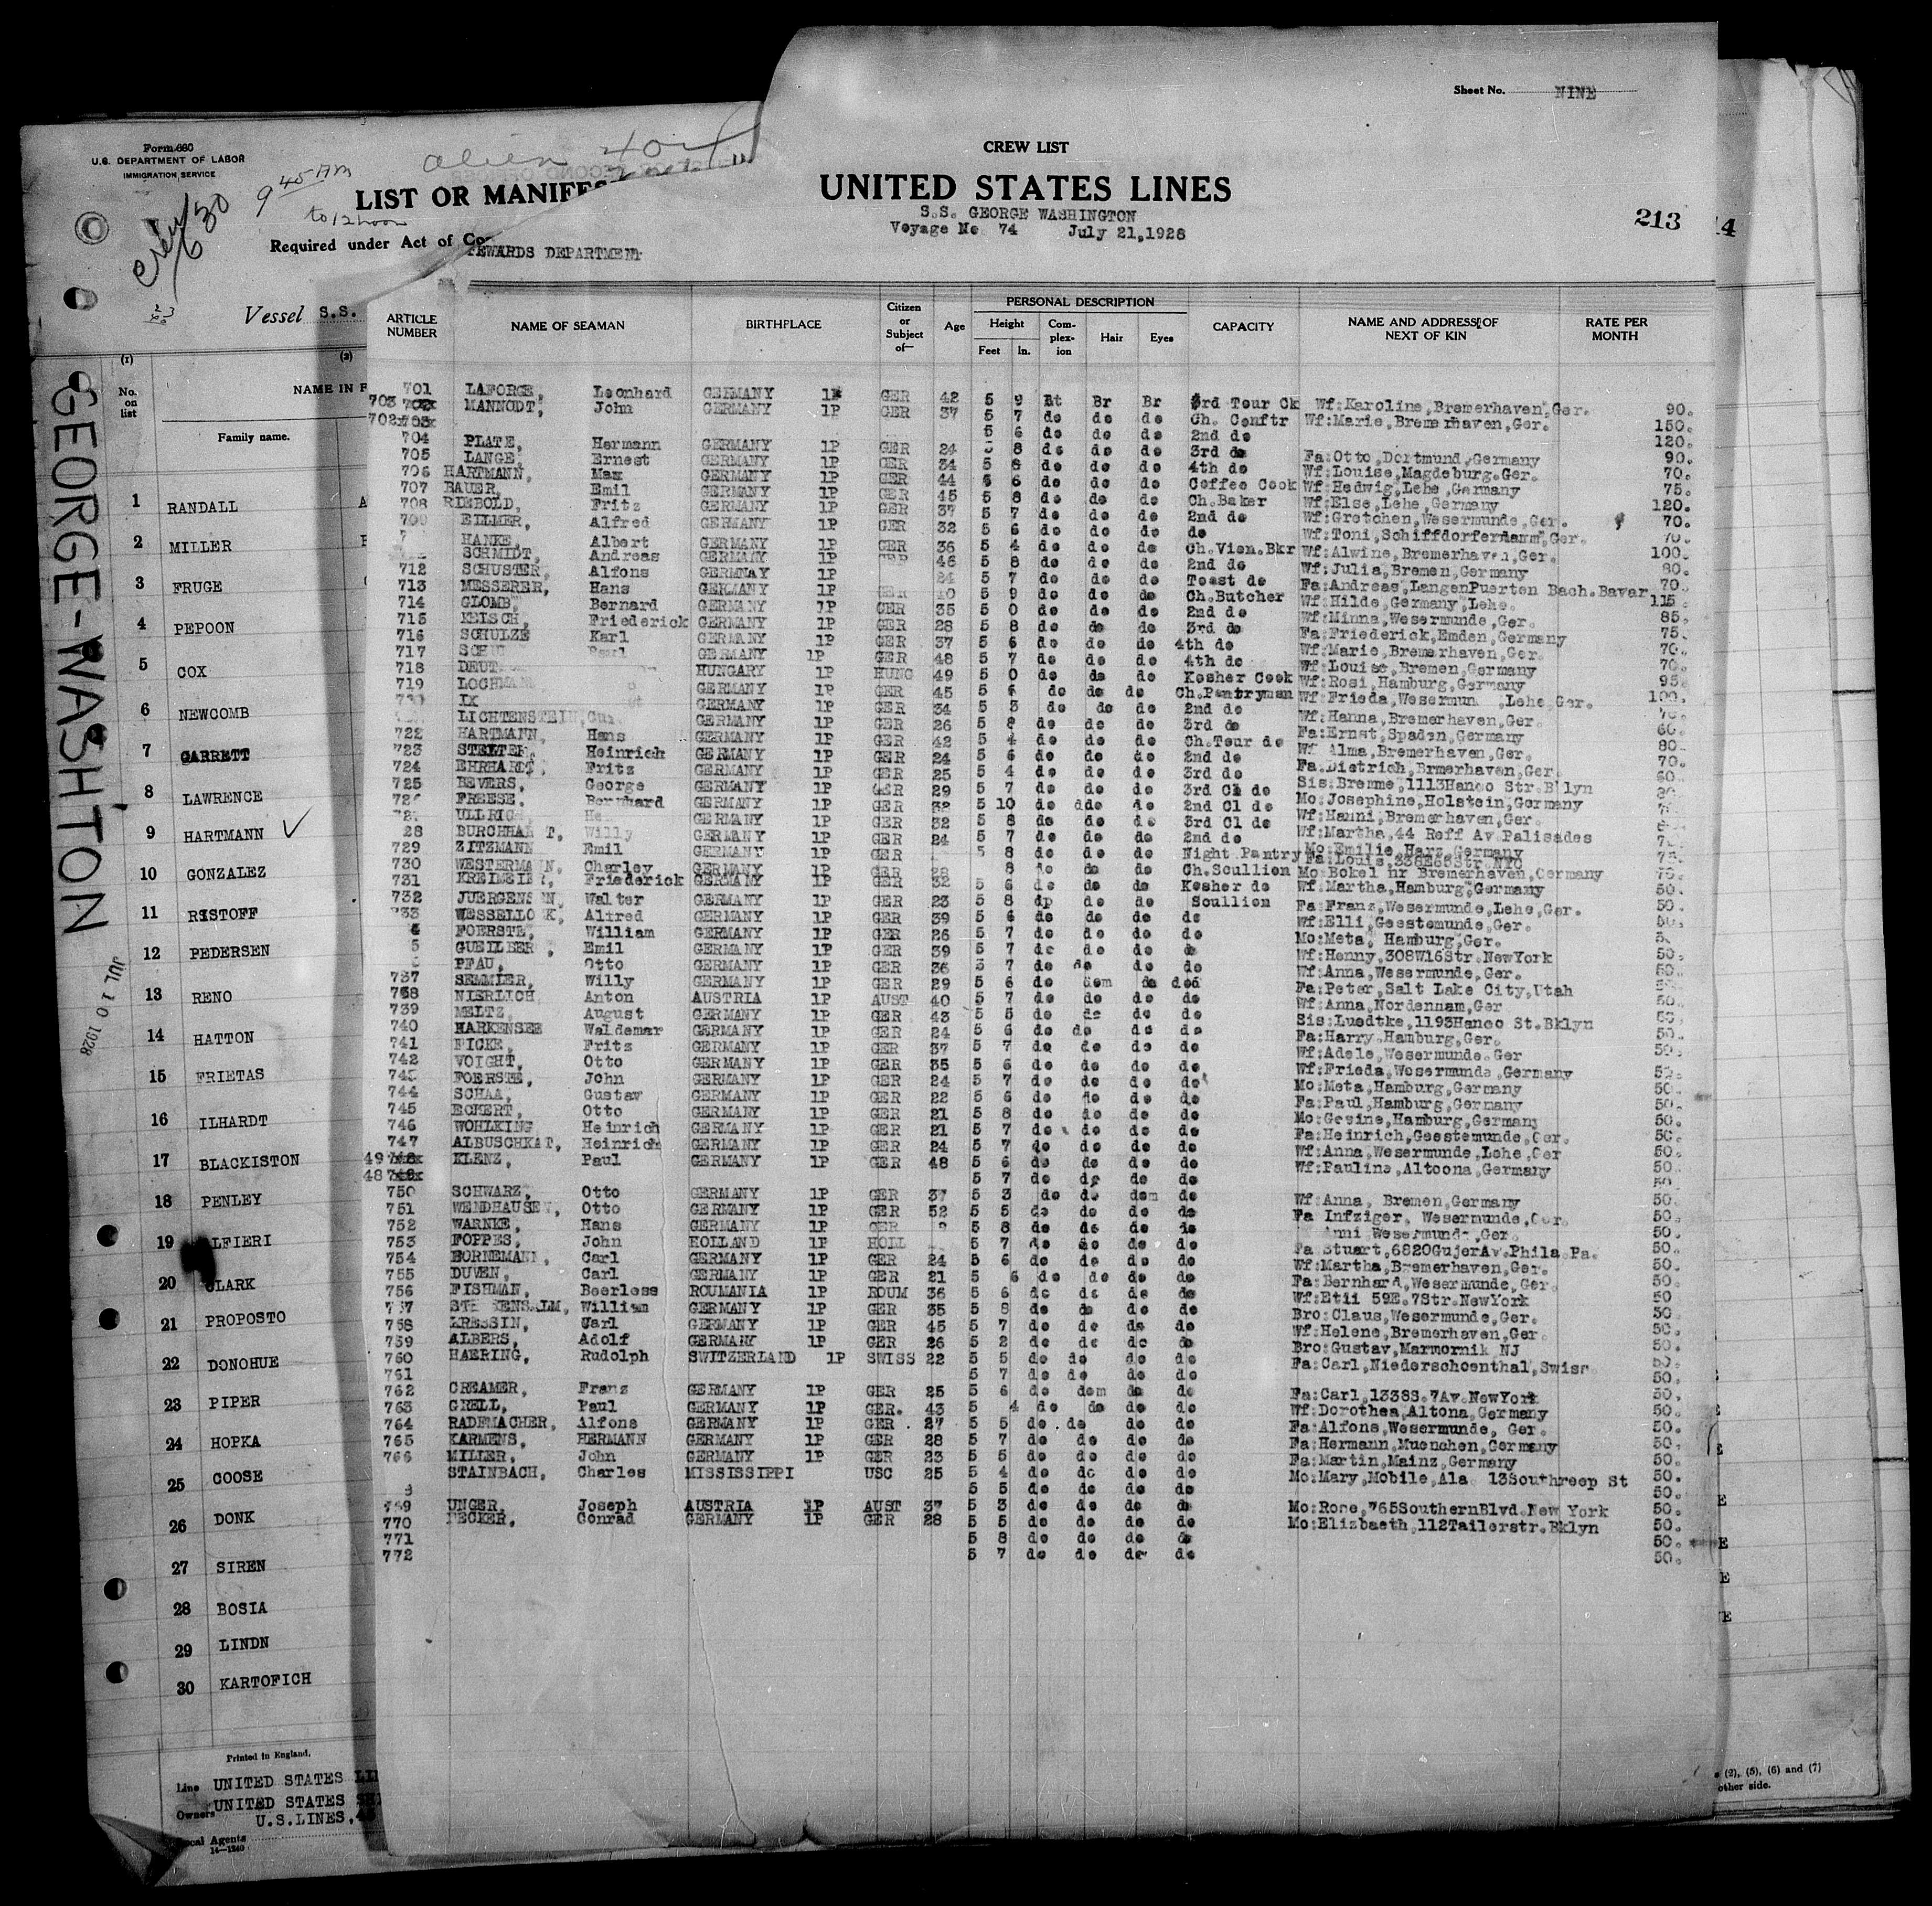 Sheet No. NINE
Form 680
U.S. DEPARTMENT OF LABOR
IMMIGRATION SERVICE
alien 40
crew 630
9 45 AM
to 12 noon
LIST OR MANIFES
Required under Act of Co
CREW LIST
UNITED STATES LINES
S.S. GEORGE WASHINGTON
Voyage No 74 July 21,1928
213
14
TEWARDS DEPARTMENT
Vessel S.S.
GEORGE-WASHTON
JUL 10 1928
(1) (2)
No. on list
NAME IN F
Family name.
1 RANDALL
2 MILLER
3 FRUGE
4 PEPOON
5 COX
6 NEWCOMB
7 GARRETT
8 LAWRENCE
9 HARTMANN
10 GONZALEZ
11 RISTOFF
12 PEDERSEN
13 RENO
14 HATTON
15 FRIETAS
16 ILHARDT
17 BLACKISTON
18 PENLEY
19 LFIERI
20 CLARK
21 PROPOSTO
22 DONOHUE
23 PIPER
24 HOPKA
25 COOSE
26 DONK
27 SIREN
28 BOSIA
29 LINDN
30 KARTOFICH
Printed in England.
Line UNITED STATES LI
Owners UNITED STATES
U.S.LINES,45
Local Agents
14—1240
ARTICLE NUMBER NAME OF SEAMAN BIRTHPLACE Citizen or Subject of— Age PERSONAL DESCRIPTION CAPACITY NAME AND ADDRESS OF NEXT OF KIN RATE PER MONTH
Height Com-plex-ion Hair Eyes
Feet In.
701 LAFORGE, Leonhard GERMANY 1P GER 42 5 9 Rt Br Br 3rd Tour Ck Wf:Karoline,Bremerhaven,Ger. 90.
703 MANNODT, John GERMANY 1P GER 37 5 7 do do do Ch. Conftr Wf:Marie,Bremerhaven,Ger. 150.
702 5 6 do do do 2nd do 120.
704 PLATE, Hermann GERMANY 1P GER 24 5 8 do do do 3rd do Fa:Otto,Dortmund,Germany 90.
705 LANGE, Ernest GERMANY 1P GER 34 5 8 do do do 4th do Wf:Louise,Magdeburg.Ger. 70.
706 HARTMANN, Max GERMANY 1P GER 44 5 6 do do do Coffee Cook Wf:Hedwig,Lehe,Germany 75.
707 BAUER, Emil GERMANY 1P GER 45 5 8 do do do Ch.Baker Wf:Else,Lehe,Germany 120.
708 RIEBOLD, Fritz GERMANY 1P GER 37 5 7 do do do 2nd do Wf:Gretchen,Wesermunde,Ger. 70.
EILMER, Alfred GERMANY 1P GER 32 5 6 do do do do Wf:Toni,Schiffdorferdamm,Ger. 70.
HANKE, Albert GERMANY 1P GER 36 5 4 do do do Ch.Vien.Bkr Wf:Alwine,Bremerhaven,Ger. 100.
SCHMIDT, Andreas GERMANY 1P 46 5 8 do do do 2nd do Wf:Julia,Bremen,Germany 80.
712 SCHUSTER, Alfons GERMNAY 1P 24 5 7 do do do Toast do Fa:Andreas,LangenPuerten Bach.Bavar 70.
713 MESSERER, Hans GERMANY 1P 5 9 do do do Ch.Butcher Wf:Hilde,Germany,Lehe. 115.
714 GLOMB, Bernard GERMANY 1P GER 35 5 0 do do do 2nd do Wf:Minna,Wesermunde,Ger. 85.
715 KEISCH, Friederick GERMANY 1P GER 28 5 8 do do do 3rd do Fa:Friederick,Emden,Germany 75.
716 SCHULZE Karl GERMANY 1P GER 37 5 6 do do do 4th do Wf:Marie,Bremerhaven,Ger. 70.
717 SCHU GERMANY 1P GER 48 5 7 do do do 4th do Wf:Louise,Bremen,Germany 70.
718 DEUT HUNGARY 1P HUNG 49 5 0 do do do Kosher Cook Wf:Rosi,Hamburg,Germany 95.
719 LOCHMAN GERMANY 1P GER 45 5 6 do do do Ch.Pantryman Wf:Frieda,Wesermun ,Lehe,Ger. 100.
GERMANY 1P GER 34 5 3 do do do 2nd do Wf:Hanna,Bremerhaven,Ger.
LICHTENSTEIN, GERMANY 1P GER 26 5 8 do do do 3rd do Fa:Ernst,Spaden,Germany 60.
722 HARTMANN, Hans GERMANY 1P GER 42 5 4 do do do Ch.Tour do Wf Alma,Bremerhaven,Ger. 80
723 STELTER Heinrich GERMANY 1P GER 24 5 6 do do do 2nd do Fa.Dietrich,Brmerhaven,Ger. 70.
724 EHRHARDT, Fritz GERMANY 1P GER 25 5 4 do do do 3rd do Sis:Bremme,1113Hanco Str.Bklyn 60.
725 BEVERS, George GERMANY 1P GER 29 5 7 do do do 3rd Cl do Mo:Josephine,Holstein,Germany
726 FREESE, Bernhard GERMANY 1P GER 32 5 10 do ddo do 2nd Cl do Wf:Hanni,Bremerhaven,Ger.
ULLRICH, He GERMANY 1P GER 32 5 8 do do do 3rd Cl do Wf:Martha,44 Reff Av.Palisades
28 BURCHHART, Willy GERMANY 1P GER 24 5 7 do do do 2nd do Mo:Emilie,Harz,Germany
729 ZITZMANN Emil GERMANY 1P GER 5 8 do do do Night Pantry Fa:Louis,338E65Str.NYC 75.
730 WESTERMANN, Charley GERMANY 1P GER 28 8 do do do Ch.Scullion Mo Bokel nr Bremerhaven,Germany 75.
731 KREIMEIER, Friederick GERMANY 1P GER 32 5 6 do do do Kosher do Wf:Martha,Hamburg,Germany 50.
732 JUERGENSEN, Walter GERMANY 1P GER 23 5 8 dp do do Scullion Fa:Franz,Wesermunde,Lehe,Ger. 50.
733 WESSELLOEK, Alfred GERMANY 1P GER 39 5 6 do do do do Wf:Elli,Geestemunde,Ger. 50.
4 FOERSTE, William GERMANY 1P GER 26 5 7 do do do do Mo:Meta, Hamburg,Ger.
5 GUEILBER, Emil GERMANY 1P GER 39 5 7 do do do Wf:Henny,308W16Str.NewYork 50.
PFAU, Otto GERMANY 1P GER 36 5 7 do do do do Wf:Anna,Wesermunde, Ger. 50.
737 SEMMLER, Willy GERMANY 1P GER 29 5 6 do dem do Fa:Peter,Salt Lake City,Utah
738 NIERLICH Anton AUSTRIA 1P AUST 40 5 7 do do do do Wf:Anna,Nordennam,Ger 50.
739 MELTZ, August GERMANY 1P GER 43 5 5 do do do do Sis:Luedtke,1193Hanco St.Bklyn 50.
740 HARKENSEE Waldemar GERMANY 1P GER 24 5 6 do do do do Fa:Harry.Hamburg,Ger. 50.
741 FICKE, Fritz GERMANY 1P GER 37 5 7 do do do do Wf:Adele,Wesermunde.Ger 50.
742 VOIGHT, Otto GERMANY 1P GER 35 5 6 do do do do Wf:Frieda,Wesermunde,Germany 50.
743 FOERSTE, John GERMANY 1P GER 24 5 7 do do do do Mo:Meta,Hamburg,Germany 50.
744 SCHAA, Gustav GERMANY 1P GER 22 5 6 do do do do Fa:Paul,Hamburg,Germany 50.
745 ECKERT, Otto GERMANY 1P GER 21 5 8 do do do do Mo:Gesine,Hamburg,Germany 50.
746 WOHLKING Heinrich GERMANY 1P GER 21 5 7 do do do do Fa:Heinrich,Geestemunde,Ger. 50.
747 ALBUSCHKAT, Heinrich GERMANY 1P GER 24 5 7 do do do do Wf:Anna,Wesermunde,Lehe,Ger 50.
49 KLENZ, Paul GERMANY 1P GER 48 5 6 do do do do Wf:Pauline,Altoona,Germany 50.
48 5 7 do do do do 50.
750 SCHWARZ, Otto GERMANY 1P GER 37 5 3 do do dem do Wf:Anna, Bremen,Germany 50.
751 WENDHAUSEN, Otto GERMANY 1P GER 52 5 5 do do do do Fa Infziger, Wesermunde,Ger. 50.
752 WARNKE, Hans GERMANY 1P GER 5 8 do do do do Wesermunde,Ger. 50.
753 FOPPES, John HOLLAND 1P HOLL 5 7 do do do do Fa Stuart,6820GujerAv.Phila.Pa. 50.
754 BORNEMANN, Carl GERMANY 1P GER 24 5 6 do do do do Wf:Martha,Bremerhaven,Ger. 50.
755 DUVEN, Carl GERMANY 1P GER 21 5 6 do do do do Fa:Bernhard,Wesermunde,Ger. 50.
756 FISHMAN, Beerless ROUMANIA 1P ROUM 36 5 6 do do do do Wf:Etii 59E.7Str.NewYork 50.
757 William GERMANY 1P GER 35 5 8 do do do do Bro:Claus,Wesermunde,Ger. 50
758 KRESSIN, Carl GERMANY 1P GER 45 5 7 do do do do Wf:Helene,Bremerhaven,Ger. 50.
759 ALBERS, Adolf GERMANY 1P GER 26 5 2 do do do do Bro:Gustav,Marmornik NJ 50.
760 HAERING, Rudolph SWITZERLAND 1P SWISS 22 5 5 do do do do Fa:Carl,Niederschoenthal,Swiss 50.
761 5 7 do do do do 50.
762 CREAMER, Franz GERMANY 1P GER 25 5 6 do dem do do Fa:Carl,133SS.7Av.NewYork 50.
763 GRELL, Paul GERMANY 1P GER. 43 5 4 do do do do Wf:Dorothea,Altona,Germany 50.
764 RADEMACHER, Alfons GERMANY 1P GER 27 5 5 do do do do Fa:Alfons,Wesermunde, Ger. 50.
765 KARMENS, HERMANN GERMANY 1P GER 28 5 7 do do do do Fa:Hermann,Muenchen,Germany 50.
766 MILLER, John GERMANY 1P GER 23 5 5 do do do do Fa:Martin,Mainz,Germany 50.
STAINBACH, Charles MISSISSIPPI USC 25 5 4 do do do do Mo:Mary,Mobile,Ala 13Southreep St 50.
8 5 5 do do do do 50.
769 UNGER, Joseph AUSTRIA 1P AUST 37 5 3 do do do do Mo:Rose,765SouthernBlvd.New York 50.
770 BECKER, Conrad GERMANY 1P GER 28 5 5 do do do do Mo:Elizbaeth,112Tailerstr.Bklyn 50.
771 5 8 do do do do 50.
772 5 7 do do do do 50.
(2), (5), (6) and (7)
other side.